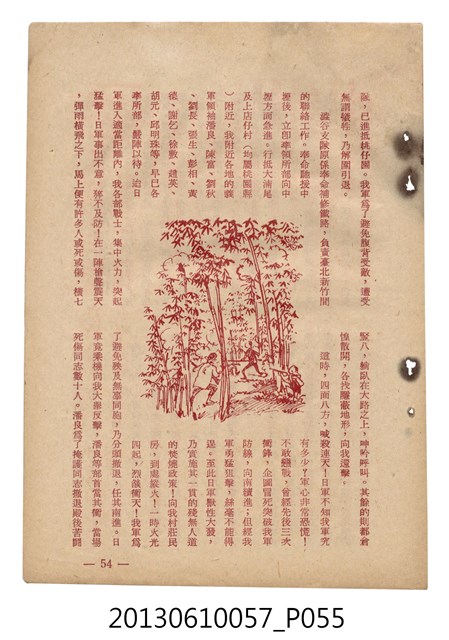 隊,已進抵桃仔園。我軍爲了避免腹背受敵,遭受
無謂犧牲,乃解圍引退。
澁谷支隊原係奉命補修鐵路,負責臺北新竹間
的聯絡工作。奉命馳援中
壢後,立即率領所部向中
壢方面急進。行抵大湳尾
及上店仔村(均屬桃園縣
)附近,我附近各地的義
軍領袖潘良、陳富、劉秋
、劉長、張生、彭相、黃
德、謝乞、徐數、鍾英、
胡元、邱明珠等,早已各
率所部,嚴陣以待。迨日
軍進入適當距離內,我各部戰士,集中火力,突起
猛擊!日軍事出不意,猝不及防!在一陣槍聲震天
,彈雨橫飛之下,馬上便有許多人或死或傷,橫七
竪八,躺臥在大路之上,呻吟呼叫。其餘的則都倉
惶散開,各找隱蔽地形,向我還擊。
這時,四面八方,喊殺連天!日軍不知我軍究
有多少!軍心非常恐慌!
不敢戀戰,曾經先後三次
衝鋒,企圖冒死突破我軍
防線,向南續進;但經我
軍勇猛狙擊,絲毫不能得
逞。至此日軍獸性大發,
乃實施其一貫的殘無人道
的焚燒政策!向我村莊民
房,到處縱火!一時火光
四起,烈燄衝天!我軍爲
了避免殃及無辜同胞,乃分頭撤退,任其南進。日
軍竟乘機向我大舉反擊,潘良等部首當其衝,當場
死傷同志數十人。潘良爲了掩護同志撤退殿後苦鬪
— 54 —
20130610057_P055